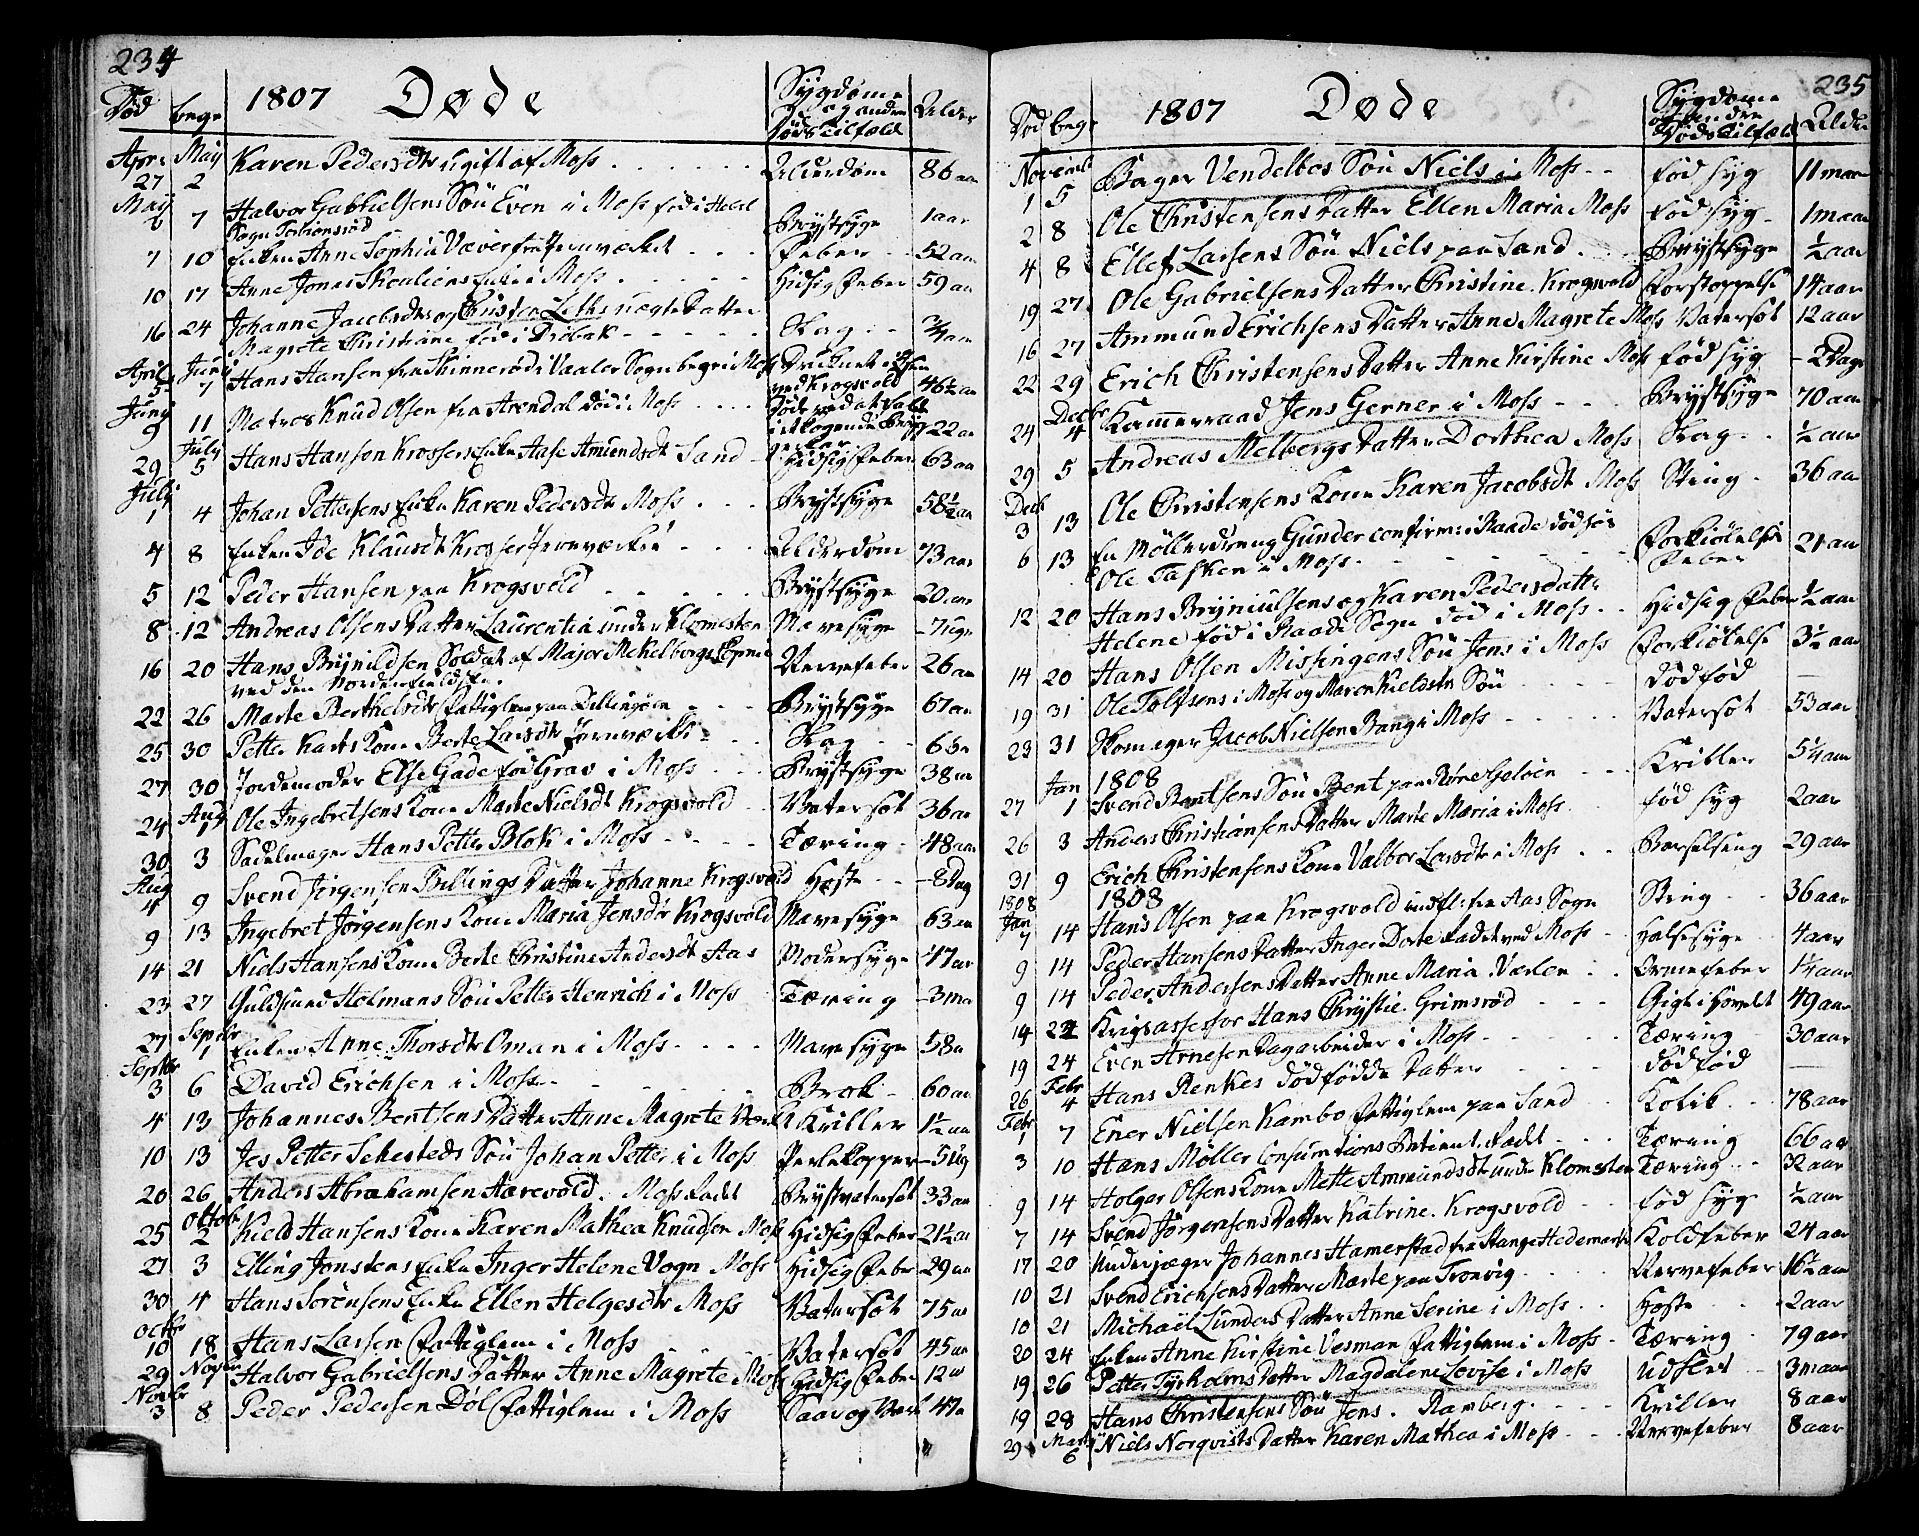 234
Død begr 1807 Døde Sygdome og andre Dødstilfæld Alder
Apri 27 May 2 Karen Pedersdtr ugift af Moss Alderdom 86 aar
May 2 7 Halvor Gabrielsens Søn Even i Moss fød i
Sogn Brystsyge 1 aar
7 10 Enken Anne Sophia Væver fra Jernværket Feber 52 aar
10 17 Anne Jonas Enke i Moss Hidsig Feber 59 aar
16 24 Johanne Jacobsdtr og Christen Leths uægte Datter
Magrete Christiane fød i Drøbak Slag 3/4 aar
April 5 Juny 7 Hans Hansen fra Skinnerød i Vaaler Sogn begr i Moss Druknet i
ved Krogsvold 46½ aar
Juny 9 11 Matros Knud Olsen fra Arendal død i Moss Døde ved at falde
i kogende 22 aar
29 July 5 Hans Hansen Krossers Enke Aase Amundsdt Sand Hidsig Feber 63 aar
July 1 4 Johan Pettersens Enke Karen Pedersdt Moss Brystsyge 58½ aar
4 8 Enken Ide Klausdt Krosser Jernværket Alderdom 73 aar
5 12 Peder Hansen paa Krogsvold Brystsyge 20 aar
8 12 Andreas Olsens Datter Laurentia under Klomesten Mavesyge 7 ugr
16 20 Hans Brynildsen Soldat af Major Mekelborgs Comp
ved den Nordenfieldske Nervefeber 26 aar
22 26 Marte Berthelsdtr Fattiglem paa Dillingøen Brystsyge 67 aar
25 30 Petter Karls Kone Berte Larsdtr Jernværket Slag 66 a
27 30 Jordemoder Else Gade fød Grav i Moss Brystsyge 38 aar
24 Aug 1 Ole Ingebretsens Kone Marte Nielsdt Krogsvold Vatersot 36 aar
30 3 Sadelmager Hans Petter Blok i Moss Tæring 48 aar
Aug 4 9 Svend Jørgensen Billings Datter Johanne Krogsvold Hoste 8 Dag
9 13 Ingebret Jørgensens Kone Maria Jensdtr Krogsvold Mavesyge 63 aar
14 21 Niels Hansens Kone Berte Christine Andersdt Aas Modersyge 47 aar
23 27 Guldsmed Holmans Søn Petter Henrich i Moss Tæring 3 ma
27 Septbr 1 Enken Anne Thorsdtr Oman i Moss Mavesyge 58 a
Septbr 3 6 David Erichsen i Moss Brok 60 aar
4 13 Johannes Bentsens Datter Anne Magrete Værl Kriller 1½ aar
10 13 Jes Petter Sehesteds Søn Johan Petter i Moss Perlekopper 5 Ug
20 26 Anders Abrahamsen Aarevold Moss Ladet Brystvatersot 33 aar
25 Octobr 2 Kield Hansens Kone Karen Mathea Knudsen Moss Hidsig Feber 21½ aar
27 3 Elling Jonstens Enke Inger Helene Vogn Moss Hidsig Feber 29 aar
30 4 Hans Sørensens Enke Ellen Helgesdtr Moss Vatersot 75 aar
Octbr 10 18 Hans Larsen Fattiglem i Moss Vatersot 45 aar
29 Novbr 1 Halvor Gabrielsens Datter Anne Magrete Moss Hidsig Feber 12 aar
Novbr 3 8 Peder Pedersen Døl Fattiglem i Moss Saar og Værk 47 a
235
Død begr 1807 Døde Sygdome og andre Dødstilfæld Alder
Novembr 1 5 Bager Vendelbos Søn Niels i Moss fød syg 11 maan
2 8 Ole Christensens Datter Ellen Maria Moss fød syg 1 maan
4 8 Ellef Larsens Søn Niels paa Sand Brystsyge ½ aar
19 27 Ole Gabrielsens Datter Christine Krogsvold Forstoppelse 14 aar
16 27 Ammund Erichsens Datter Anne Magrete Moss Vatersot 12 aar
22 29 Erich Christensens Datter Anne Kirstine Moss fød syg 2 Dage
24 Decbr 4 Kammerraad Jens Gerner i Moss Brystsyge 70 aar
29 5 Andreas Melbergs Datter Dorthea Moss Slag ½ aar
Decb 3 13 Ole Christensens Kone Karen Jacobsdt Moss Sting 36 aar
6 13 En Møllerdreng Gunder confirm: i Raade død hos
Ole Tasken i Moss Forkiølelses Feber 21 aar
12 20 Hans Brynildsens og Karen Pedersdatter
Helene fød i Raade Sogn død i Moss Hidsig Feber ½ aar
14 20 Hans Olsen Missingens Søn Jens i Moss Forkiølelse 3½ aar
19 31 Ole Tolfsens i Moss og Maren Kieldstr Søn dødfød
23 31 Skomager Jacob Nielsen Bang i Moss Vatersot 53 aar
Jan 1808
27 1 Svend Bentsens Søn Bent paa Rørs Jeløen Kriller 5¼ aar
26 3 Anders Christiansens Datter Marte Maria i Moss fød syg 2 aar
31 9 Erich Christensens Kone Valbor Larsdt i Moss Barselseng 29 aar
1808 1808
Jan 7 14 Hans Olsen paa Krogsvold indfl: fra Aas Sogn Sting 36 aar
9 14 Peder Hansens Datter Inger Dorte Ladet ved Moss Halssyge 4 aar
9 14 Peder Andersens Datter Anne Maria Værlen Ormefeber 1¼ aar
14 22 Krigsassessor Hans Chrystie Grimsrød Gigt i Hovedt 49 aar
19 24 Even Arnesen Dagarbeider i Moss Tæring 30 aar
26 Febr 4 Hans Renkes dødfødde Datter dødfød
Febr 1 7 Ener Nielsen Kambo Fattiglem paa Sand Kolik 78 aar
3 10 Hans Møller Consumtions Betient Ladet Tæring 66 aar
9 14 Holger Olsens Kone Mette Ammundsdt under Klomesten Tæring 32 aar
7 14 Svend Jørgensens Datter Katrine Krogsvold fød syg ½ aar
17 20 Underjæger Johannes Hamerstad fra Stange Hedemarken Koldfeber 24 aar
10 21 Svend Erichsens Datter Marte paa Tronvig Nervefeber 16½ aar
10 21 Michael Lunders Datter Anne Serine i Moss Hoste 2 aar
20 24 Enken Anne Kirstine Vesman Fattiglem i Moss Tæring 79 aar
19 26 Petter Tyrholms Datter Magdalene Lovise i Moss Udslet 3 maan
19 28 Hans Christensens Søn Jens Ramberg Kriller 8 aar
29 Marty 6 Niels Norqvists Datter Karen Mathea i Moss Nervefeber 8 aar